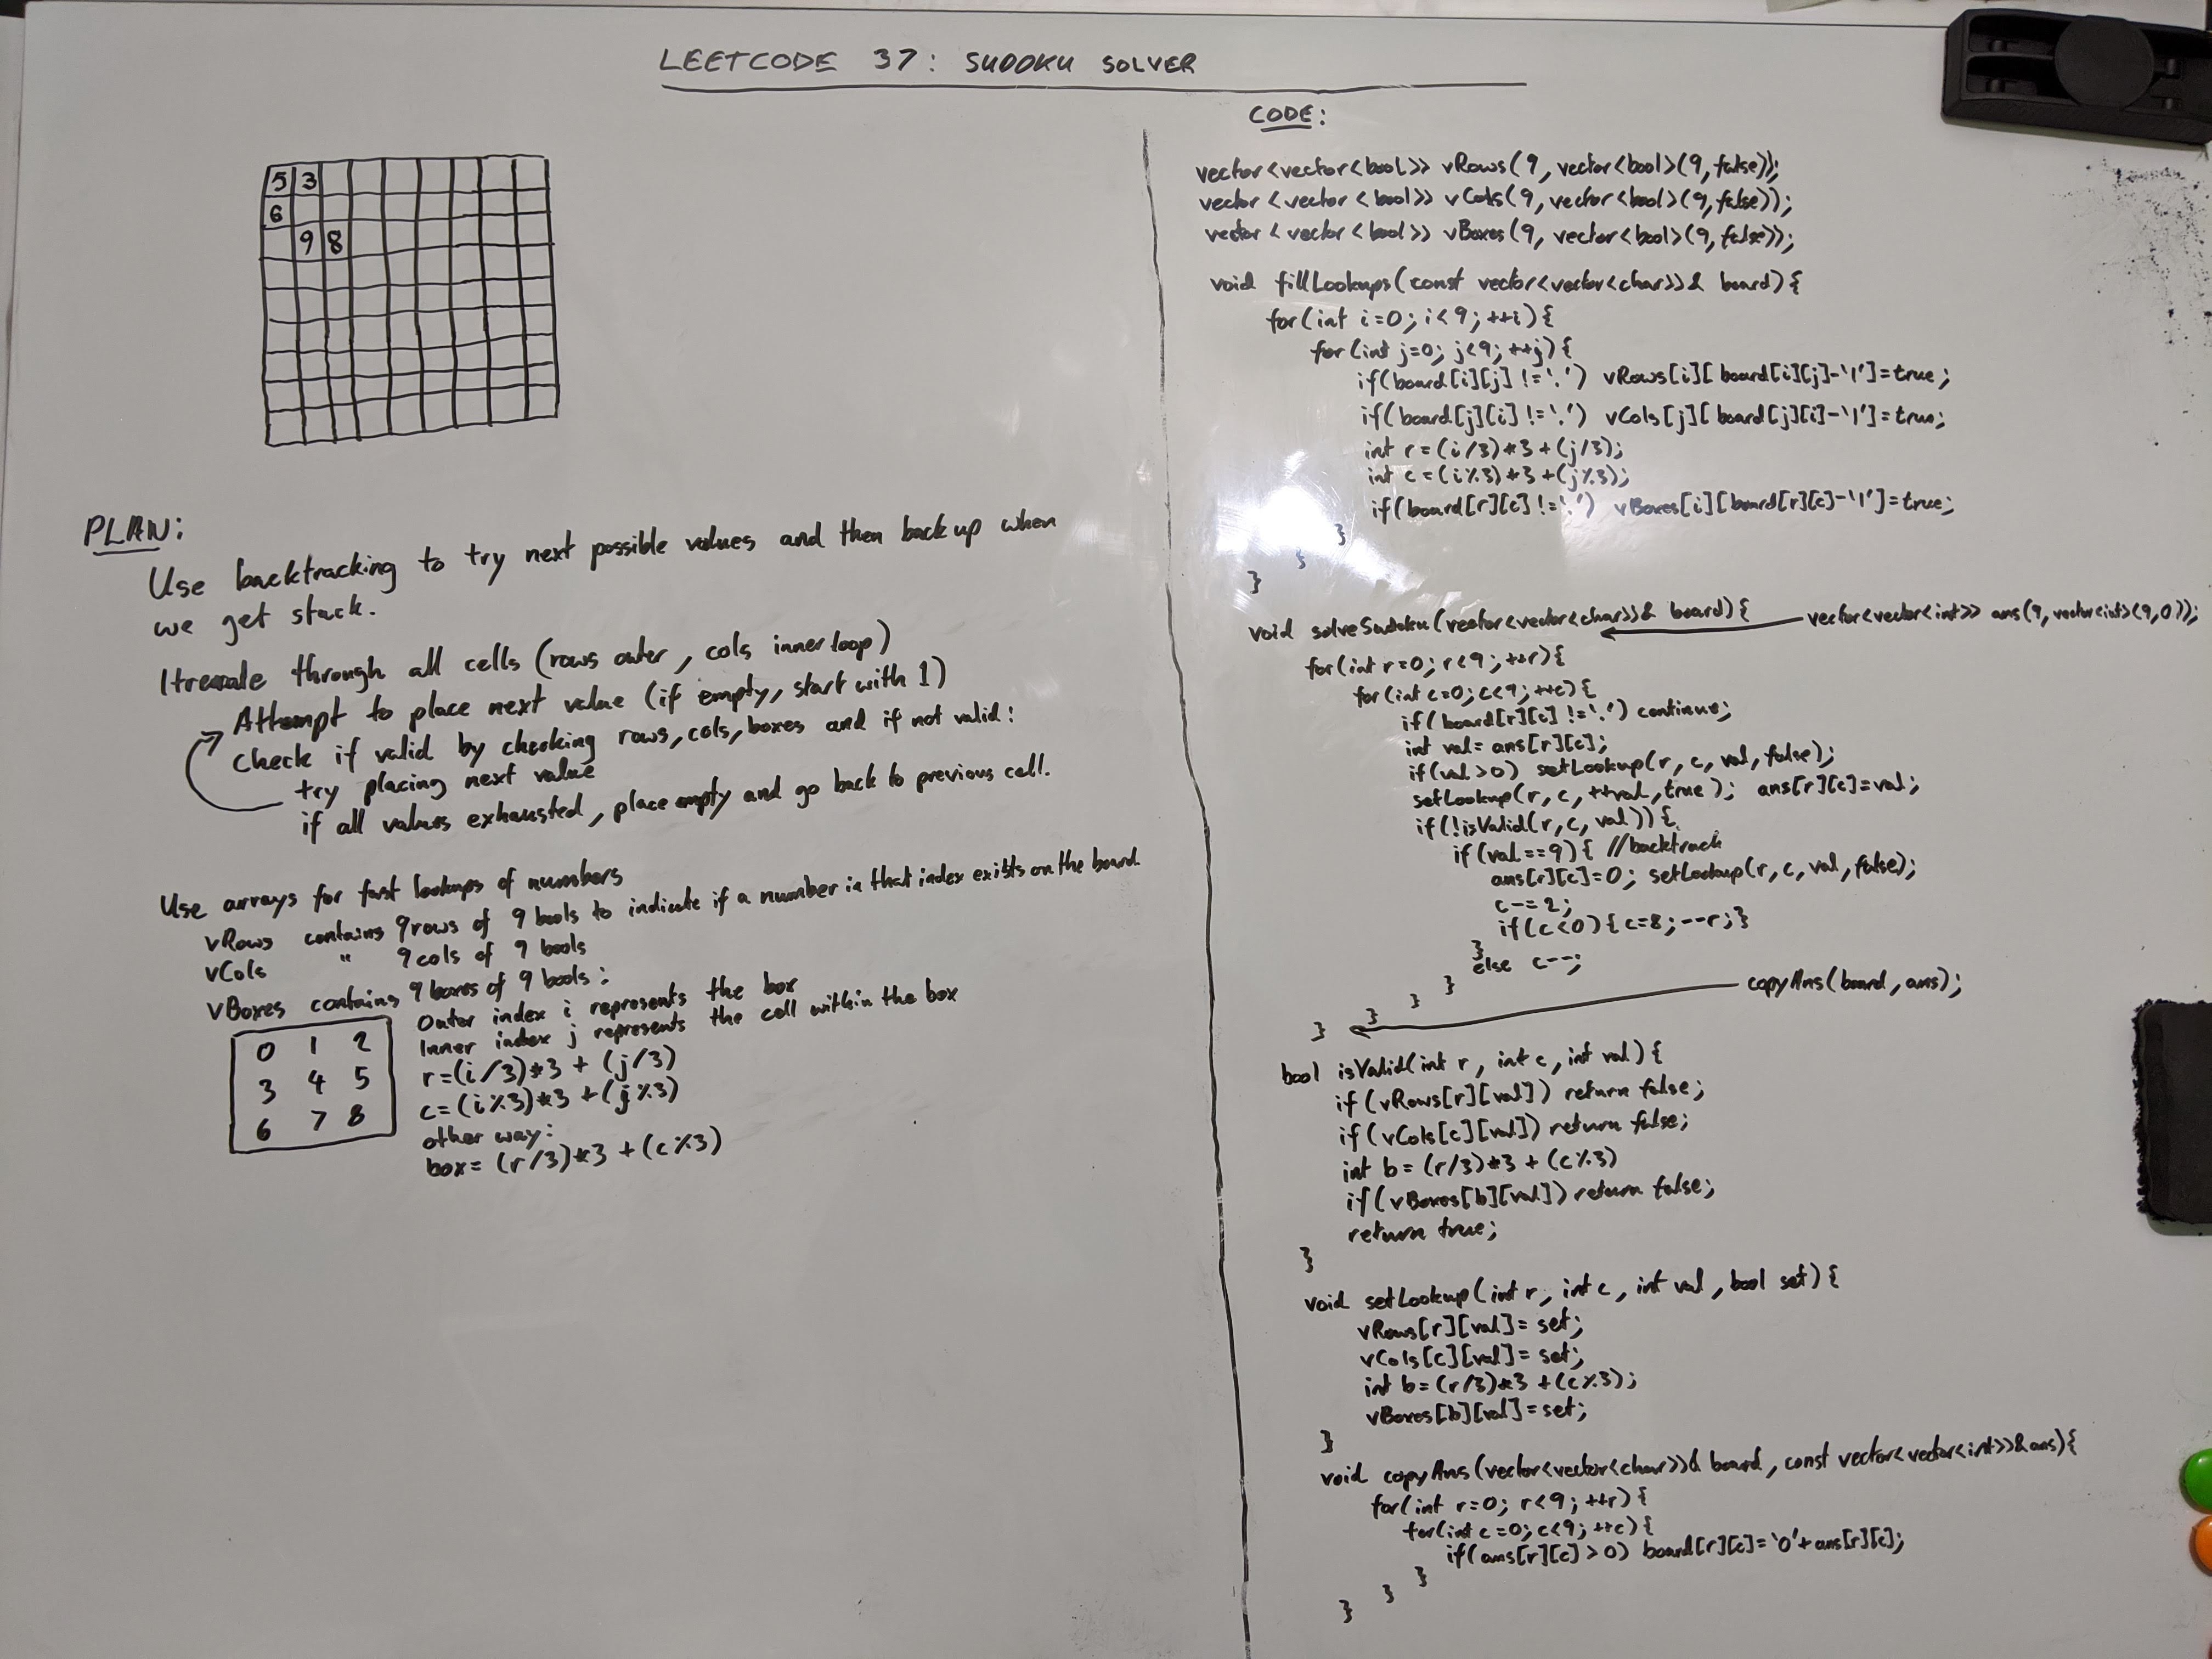 LEETCODE 37: SUDOKU SOLVER
5 3
6
9 8
PLAN:
Use backtracking to try next possible values and then back up when
we get stuck.
Iterate through all cells (rows outer, cols inner loop)
Attempt to place next value (if empty, start with 1)
Check if valid by checking rows, cols, boxes and if not valid:
try placing next value
if all values exhausted, place empty and go back to previous cell.
Use arrays for fast lookups of numbers
vRows contains 9 rows of 9 bools to indicate if a number in that index exists on the board.
vCols " 9 cols of 9 bools
vBoxes contains 9 boxes of 9 bools:
Outer index i represents the box
Inner index j represents the cell within the box
0 1 2
3 4 5
6 7 8
r=(i/3)*3 + (j/3)
c=(i%3)*3 +(j%3)
other way:
box= (r/3)*3 +(c%3)
CODE:
vector<vector<bool>> vRows(9, vector<bool>(9,false));
vector<vector<bool>> vCols(9, vector<bool>(9,false));
vector<vector<bool>> vBoxes(9, vector<bool>(9,false));
void fillLookups(const vector<vector<char>>& board){
for(int i=0; i<9; ++i){
for(int j=0; j<9; ++j){
if(board[i][j] != '.') vRows[i][board[i][j]-'1']=true;
if(board[j][i] != '.') vCols[j][board[j][i]-'1']=true;
int r=(i/3)*3+(j/3);
int c=(i%3)*3+(j%3);
if(board[r][c] != '.') vBoxes[i][board[r][c]-'1']=true;
}
}
}
void solveSudoku(vector<vector<char>>& board){
vector<vector<int>> ans(9, vector<int>(9,0));
for(int r=0; r<9; ++r){
for(int c=0; c<9; ++c){
if(board[r][c] != '.') continue;
int val= ans[r][c];
if(val>0) setLookup(r, c, val, false);
setLookup(r, c, ++val, true); ans[r][c]=val;
if(!isValid(r, c, val)){
if(val==9){ //backtrack
ans[r][c]=0; setLookup(r, c, val, false);
c-=2;
if(c<0){c=8; --r;}
}
else c--;
}
}
}
copyAns(board, ans);
}
bool isValid(int r, int c, int val){
if(vRows[r][val]) return false;
if(vCols[c][val]) return false;
int b=(r/3)*3 + (c%3)
if(vBoxes[b][val]) return false;
return true;
}
void setLookup(int r, int c, int val, bool set){
vRows[r][val]= set;
vCols[c][val]= set;
int b=(r/3)*3 +(c%3);
vBoxes[b][val]=set;
}
void copyAns(vector<vector<char>>& board, const vector<vector<int>>& ans){
for(int r=0; r<9; ++r){
for(int c=0; c<9; ++c){
if(ans[r][c]>0) board[r][c]='0'+ans[r][c];
}
}
}